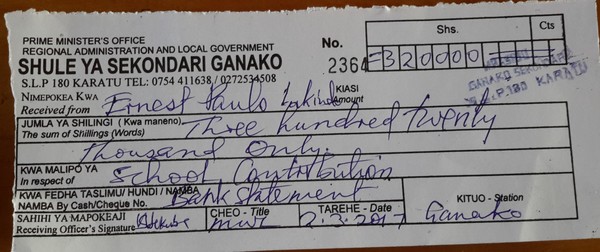 PRIME MINISTER'S OFFICE
REGIONAL ADMINISTRATION AND LOCAL GOVERNMENT
SHULE YA SEKONDARI GANAKO
S.L.P 180 KARATU TEL: 0754 411638 / 0272534508
No. 2364
Shs. Cts
=320000=
GANAKO SECONDARY
P.180 KARATU
NIMEPOKEA KWA
Received from Ernest Paulo
KIASI
Amount
JUMLA YA SHILINGI (Kwa maneno) Three hundred twenty
The sum of Shillings (Words)
thousand Only.
KWA MALIPO YA School Contribution
In respect of
KWA FEDHA TASLIMU/ HUNDI / NAMBA Bank Statement
NAMBA By Cash/Cheque No.
SAHIHI YA MAPOKEAJI CHEO - Title TAREHE - Date KITUO - Station
Receiving Officer's Signature 2.2.2017 Ganako